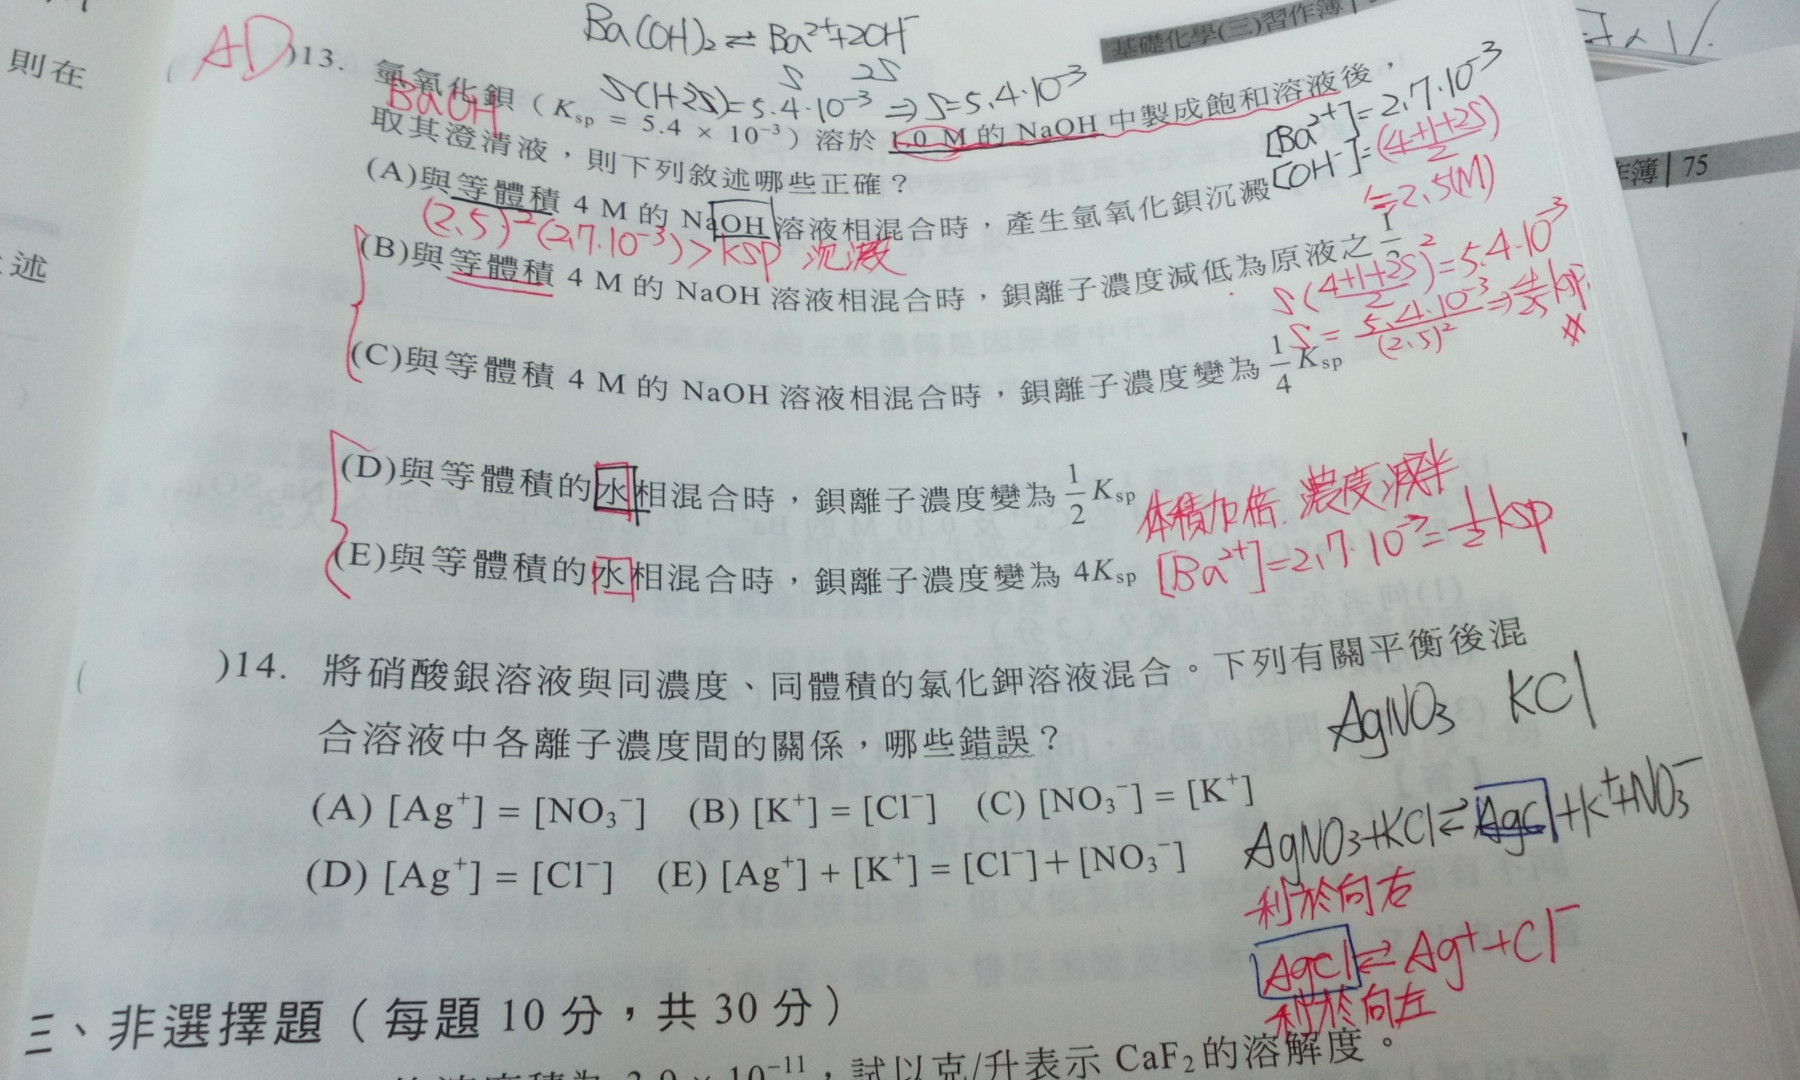 則在
述
基礎化學(三)習作簿
作簿 | 75
Ba(OH)₂ ⇌ Ba²⁺+2OH⁻
S 2S
S(1+2S)=5.4·10⁻³ ⇒ S=5.4·10⁻³
AD
)13. 氫氧化鋇（Ksp = 5.4 × 10⁻³）溶於 1.0 M 的 NaOH 中製成飽和溶液後，
BaOH
取其澄清液，則下列敘述哪些正確？
[Ba²⁺]=2.7·10⁻³
[OH⁻]=(4+1+2S)/2
≒2.5(M)
(A)與等體積 4 M 的 NaOH 溶液相混合時，產生氫氧化鋇沉澱
(2.5)²(2.7·10⁻³)>Ksp 沉澱
(B)與等體積 4 M 的 NaOH 溶液相混合時，鋇離子濃度減低為原液之
S((4+1+2S)/2)²=5.4·10⁻³
S=5.4·10⁻³/(2.5)² ⇒ 4/25 Ksp #
(C)與等體積 4 M 的 NaOH 溶液相混合時，鋇離子濃度變為 1/4 Ksp
(D)與等體積的水相混合時，鋇離子濃度變為 1/2 Ksp
体積加倍. 濃度減半
(E)與等體積的水相混合時，鋇離子濃度變為 4Ksp
[Ba²⁺]=2.7·10⁻³=1/2 Ksp
( )14. 將硝酸銀溶液與同濃度、同體積的氯化鉀溶液混合。下列有關平衡後混
合溶液中各離子濃度間的關係，哪些錯誤？
AgNO₃ KCl
(A) [Ag⁺] = [NO₃⁻] (B) [K⁺] = [Cl⁻] (C) [NO₃⁻] = [K⁺]
(D) [Ag⁺] = [Cl⁻] (E) [Ag⁺] + [K⁺] = [Cl⁻] + [NO₃⁻]
AgNO₃+KCl ⇌ AgCl+K⁺+NO₃⁻
利於向右
AgCl ⇌ Ag⁺+Cl⁻
利於向左
三、非選擇題（每題 10 分，共 30 分）
10⁻¹¹，試以克/升表示 CaF₂ 的溶解度。